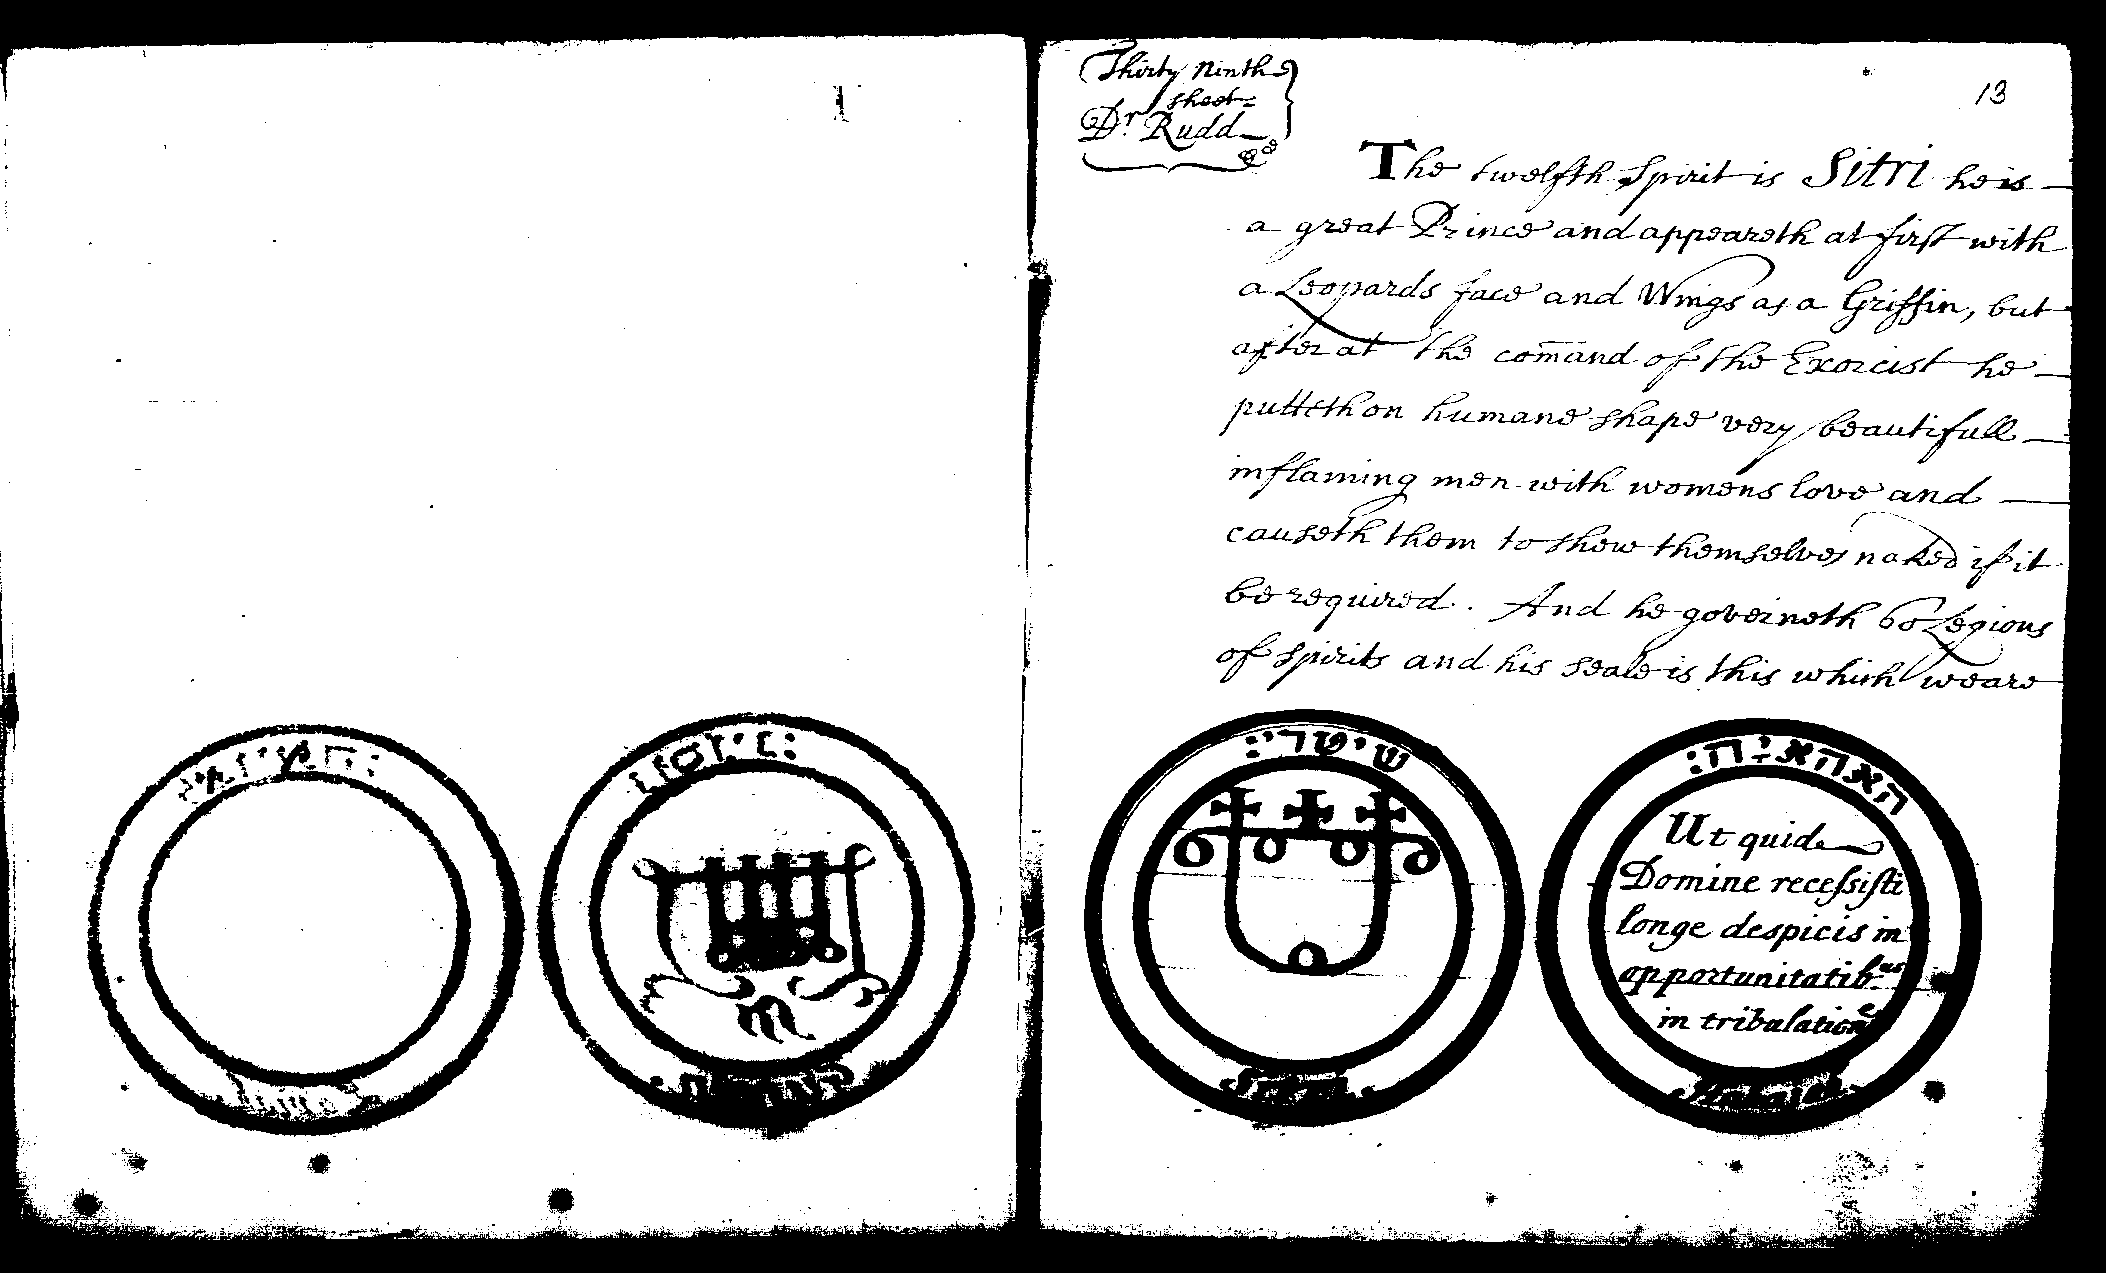 Thirty Ninth
sheet
Dr Rudd
13
The twelfth Spirit is Sitri he is
a great Prince and appeareth at first with
a Leopards face and Wings as a Griffin, but
after at the comand of the Exorcist he
putteth on humane shape very beautifull
inflaming men with womens love and
causeth them to shew themselves naked if it
be required. And he governeth 60 Legions
of spirits and his seale is this which weare
שיטרי:
האהאיה:
Ut quid
Domine recessisti
longe despicis in
opportunitatibus
in tribulatione
Sitri